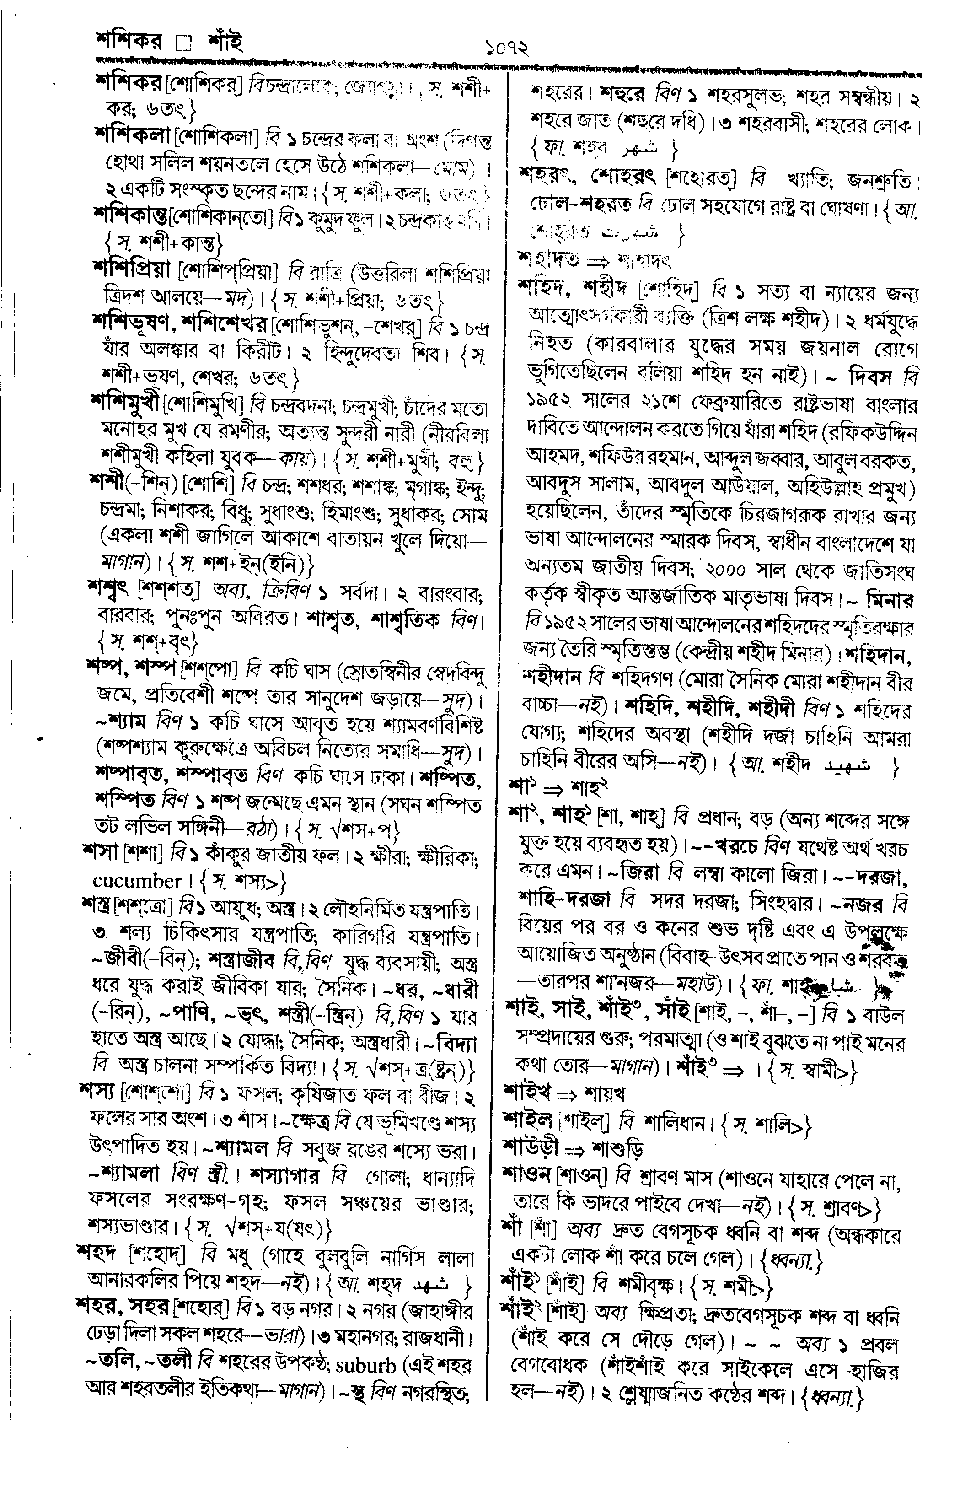 শশিকর □ শাঁই
১০৭২
শশিকর [শোশিকর্] বি চন্দ্রালোক; {স. শশী+
কর; ৬তৎ}
শশিকলা [শোশিকলা] বি ১ চন্দ্রের কলা বা অংশ (দিগন্ত
হোথা সলিল শয়নতলে হেসে উঠে শশিকলা—মোম) ।
২ একটি সংস্কৃত ছন্দের নাম। {স. শশী+কলা; ৬তৎ}
শশিকান্ত [শোশিকান্‌তো] বি ১ কুমুদ ফুল। ২ চন্দ্রকান্ত মণি।
{স. শশী+কান্ত}
শশিপ্রিয়া [শোশিপ্‌প্রিয়া] বি রাত্রি (উত্তরিলা শশিপ্রিয়া
ত্রিদশ আলয়ে—মদ)। {স. শশী+প্রিয়া; ৬তৎ}
শশিভূষণ, শশিশেখর [শোশিভুশন্, -শেখর্] বি ১ চন্দ্র
যাঁর অলঙ্কার বা কিরীট। ২ হিন্দুদেবতা শিব। {স.
শশী+ভূষণ, শেখর; ৬তৎ}
শশিমুখী [শোশিমুখি] বি চন্দ্রবদনা; চন্দ্রমুখী; চাঁদের মতো
মনোহর মুখ যে রমণীর; অত্যন্ত সুন্দরী নারী (নীরবিলা
শশীমুখী কহিলা যুবক—কায়)। {স. শশী+মুখী; বহু}
শশী(-শিন্) [শোশি] বি চন্দ্র; শশধর; শশাঙ্ক; মৃগাঙ্ক; ইন্দু;
চন্দ্রমা; নিশাকর; বিধু; সুধাংশু; হিমাংশু; সুধাকর; সোম
(একলা শশী জাগিলে আকাশে বাতায়ন খুলে দিয়ো—
মাগান)। {স. শশ+ইন্(ইনি)}
শশ্বৎ [শশ্‌শত্] অব্য, ক্রিবিণ ১ সর্বদা। ২ বারংবার;
বারবার; পুনঃপুন অবিরত। শাশ্বত, শাশ্বতিক বিণ।
{স. শশ্+বৎ}
শষ্প, শস্প [শশ্‌পো] বি কচি ঘাস (স্রোতস্বিনীর স্বেদবিন্দু
জমে, প্রতিবেশী শষ্পে তার সানুদেশ জড়ায়ে—সুদ)।
~শ্যাম বিণ ১ কচি ঘাসে আবৃত হয়ে শ্যামবর্ণবিশিষ্ট
(শষ্পশ্যাম কুরুক্ষেত্রে অবিচল নিত্যের সমাধি—সুদ)।
শষ্পাবৃত, শস্পাবৃত বিণ কচি ঘাসে ঢাকা। শষ্পিত,
শস্পিত বিণ ১ শষ্প জন্মেছে এমন স্থান (সঘন শস্পিত
তট লভিল সঙ্গিনী—রঠা)। {স. √শস্+প}
শসা [শশা] বি ১ কাঁকুর জাতীয় ফল। ২ ক্ষীরা; ক্ষীরিকা;
cucumber। {স. শস্য>}
শস্ত্র [শশ্‌ত্রো] বি ১ আয়ুধ; অস্ত্র। ২ লৌহনির্মিত যন্ত্রপাতি।
৩ শল্য চিকিৎসার যন্ত্রপাতি; কারিগরি যন্ত্রপাতি।
~জীবী(-বিন্); শস্ত্রাজীব বি,বিণ যুদ্ধ ব্যবসায়ী; অস্ত্র
ধরে যুদ্ধ করাই জীবিকা যার; সৈনিক। ~ধর, ~ধারী
(-রিন্), ~পাণি, ~ভৃৎ, শস্ত্রী(-স্ত্রিন্) বি,বিণ ১ যার
হাতে অস্ত্র আছে। ২ যোদ্ধা; সৈনিক; অস্ত্রধারী। ~বিদ্যা
বি অস্ত্র চালনা সম্পর্কিত বিদ্যা। {স. √শস্+ত্র(ষ্ট্রন্)}
শস্য [শোশ্‌শো] বি ১ ফসল; কৃষিজাত ফল বা বীজ। ২
ফলের সার অংশ। ৩ শাঁস। ~ক্ষেত্র বি যে ভূমিখণ্ডে শস্য
উৎপাদিত হয়। ~শ্যামল বি সবুজ রঙের শস্যে ভরা।
~শ্যামলা বিণ স্ত্রী.। শস্যাগার বি গোলা; ধান্যাদি
ফসলের সংরক্ষণ-গৃহ; ফসল সঞ্চয়ের ভাণ্ডার;
শস্যভাণ্ডার। {স. √শস্+য(যৎ)}
শহদ [শহোদ্] বি মধু (গাহে বুলবুলি নার্গিস লালা
আনারকলির পিয়ে শহদ—নই)। {আ. শহদ شهد}
শহর, সহর [শহোর্] বি ১ বড় নগর। ২ নগর (জাহাঙ্গীর
ঢেড়া দিলা সকল শহরে—ভারা)। ৩ মহানগর; রাজধানী।
~তলি, ~তলী বি শহরের উপকণ্ঠ; suburb (এই শহর
আর শহরতলীর ইতিকথা—মাগান)। ~স্থ বিণ নগরস্থিত;
শহরের। শহুরে বিণ ১ শহরসুলভ; শহর সম্বন্ধীয়। ২
শহরে জাত (শহুরে দধি)। ৩ শহরবাসী; শহরের লোক।
{ফা. শহর شهر}
শহরৎ, শোহরৎ [শহোরত্] বি খ্যাতি; জনশ্রুতি;
ঢোল-শহরত বি ঢোল সহযোগে রাষ্ট্র বা ঘোষণা। {আ.
শোহরত شهرت}
শহাদত ⇒ শাহাদৎ
শহিদ, শহীদ [শোহিদ্] বি ১ সত্য বা ন্যায়ের জন্য
আত্মোৎসর্গকারী ব্যক্তি (ত্রিশ লক্ষ শহীদ)। ২ ধর্মযুদ্ধে
নিহত (কারবালার যুদ্ধের সময় জয়নাল রোগে
ভুগিতেছিলেন বলিয়া শহিদ হন নাই)। ~ দিবস বি
১৯৫২ সালের ২১শে ফেব্রুয়ারিতে রাষ্ট্রভাষা বাংলার
দাবিতে আন্দোলন করতে গিয়ে যাঁরা শহিদ (রফিকউদ্দিন
আহমদ, শফিউর রহমান, আব্দুল জব্বার, আবুল বরকত,
আবদুস সালাম, আবদুল আউয়াল, অহিউল্লাহ প্রমুখ)
হয়েছিলেন, তাঁদের স্মৃতিকে চিরজাগরূক রাখার জন্য
ভাষা আন্দোলনের স্মারক দিবস, স্বাধীন বাংলাদেশে যা
অন্যতম জাতীয় দিবস; ২০০০ সাল থেকে জাতিসংঘ
কর্তৃক স্বীকৃত আন্তর্জাতিক মাতৃভাষা দিবস। ~ মিনার
বি ১৯৫২ সালের ভাষা আন্দোলনের শহিদদের স্মৃতিরক্ষার
জন্য তৈরি স্মৃতিস্তম্ভ (কেন্দ্রীয় শহীদ মিনার)। শহিদান,
শহীদান বি শহিদগণ (মোরা সৈনিক মোরা শহীদান বীর
বাচ্চা—নই)। শহিদি, শহীদি, শহীদী বিণ ১ শহিদের
যোগ্য; শহিদের অবস্থা (শহীদি দর্জা চাহিনি আমরা
চাহিনি বীরের অসি—নই)। {আ. শহীদ شهيد}
শা১ ⇒ শাহ২
শা২, শাহ১ [শা, শাহ্] বি প্রধান; বড় (অন্য শব্দের সঙ্গে
যুক্ত হয়ে ব্যবহৃত হয়)। ~-খরচে বিণ যথেষ্ট অর্থ খরচ
করে এমন। ~জিরা বি লম্বা কালো জিরা। ~-দরজা,
শাহি-দরজা বি সদর দরজা; সিংহদ্বার। ~নজর বি
বিয়ের পর বর ও কনের শুভ দৃষ্টি এবং এ উপলক্ষে
আয়োজিত অনুষ্ঠান (বিবাহ-উৎসব প্রাতে পান ও শরবত
—তারপর শা'নজর—মহাউ)। {ফা. শাহ شاه}
শাই, সাই, শাঁই৩, সাঁই [শাই, -, শাঁ-, -] বি ১ বাউল
সম্প্রদায়ের গুরু; পরমাত্মা (ও শাই বুঝতে না পাই মনের
কথা তোর—মাগান)। শাঁই৩ ⇒ । {স. স্বামী>}
শাইখ ⇒ শায়খ
শাইল [শাইল্] বি শালিধান। {স. শালি>}
শাউড়ী ⇒ শাশুড়ি
শাওন [শাওন্] বি শ্রাবণ মাস (শাওনে যাহারে পেলে না,
তারে কি ভাদরে পাইবে দেখা—নই)। {স. শ্রাবণ>}
শাঁ [শাঁ] অব্য দ্রুত বেগসূচক ধ্বনি বা শব্দ (অন্ধকারে
একটা লোক শাঁ করে চলে গেল)। {ধ্বন্যা.}
শাঁই১ [শাঁই] বি শমীবৃক্ষ। {স. শমী>}
শাঁই২ [শাঁই] অব্য ক্ষিপ্রতা; দ্রুতবেগসূচক শব্দ বা ধ্বনি
(শাঁই করে সে দৌড়ে গেল)। ~ ~ অব্য ১ প্রবল
বেগবোধক (শাঁইশাঁই করে সাইকেলে এসে হাজির
হল—নই)। ২ শ্লেষ্মাজনিত কণ্ঠের শব্দ। {ধ্বন্যা.}